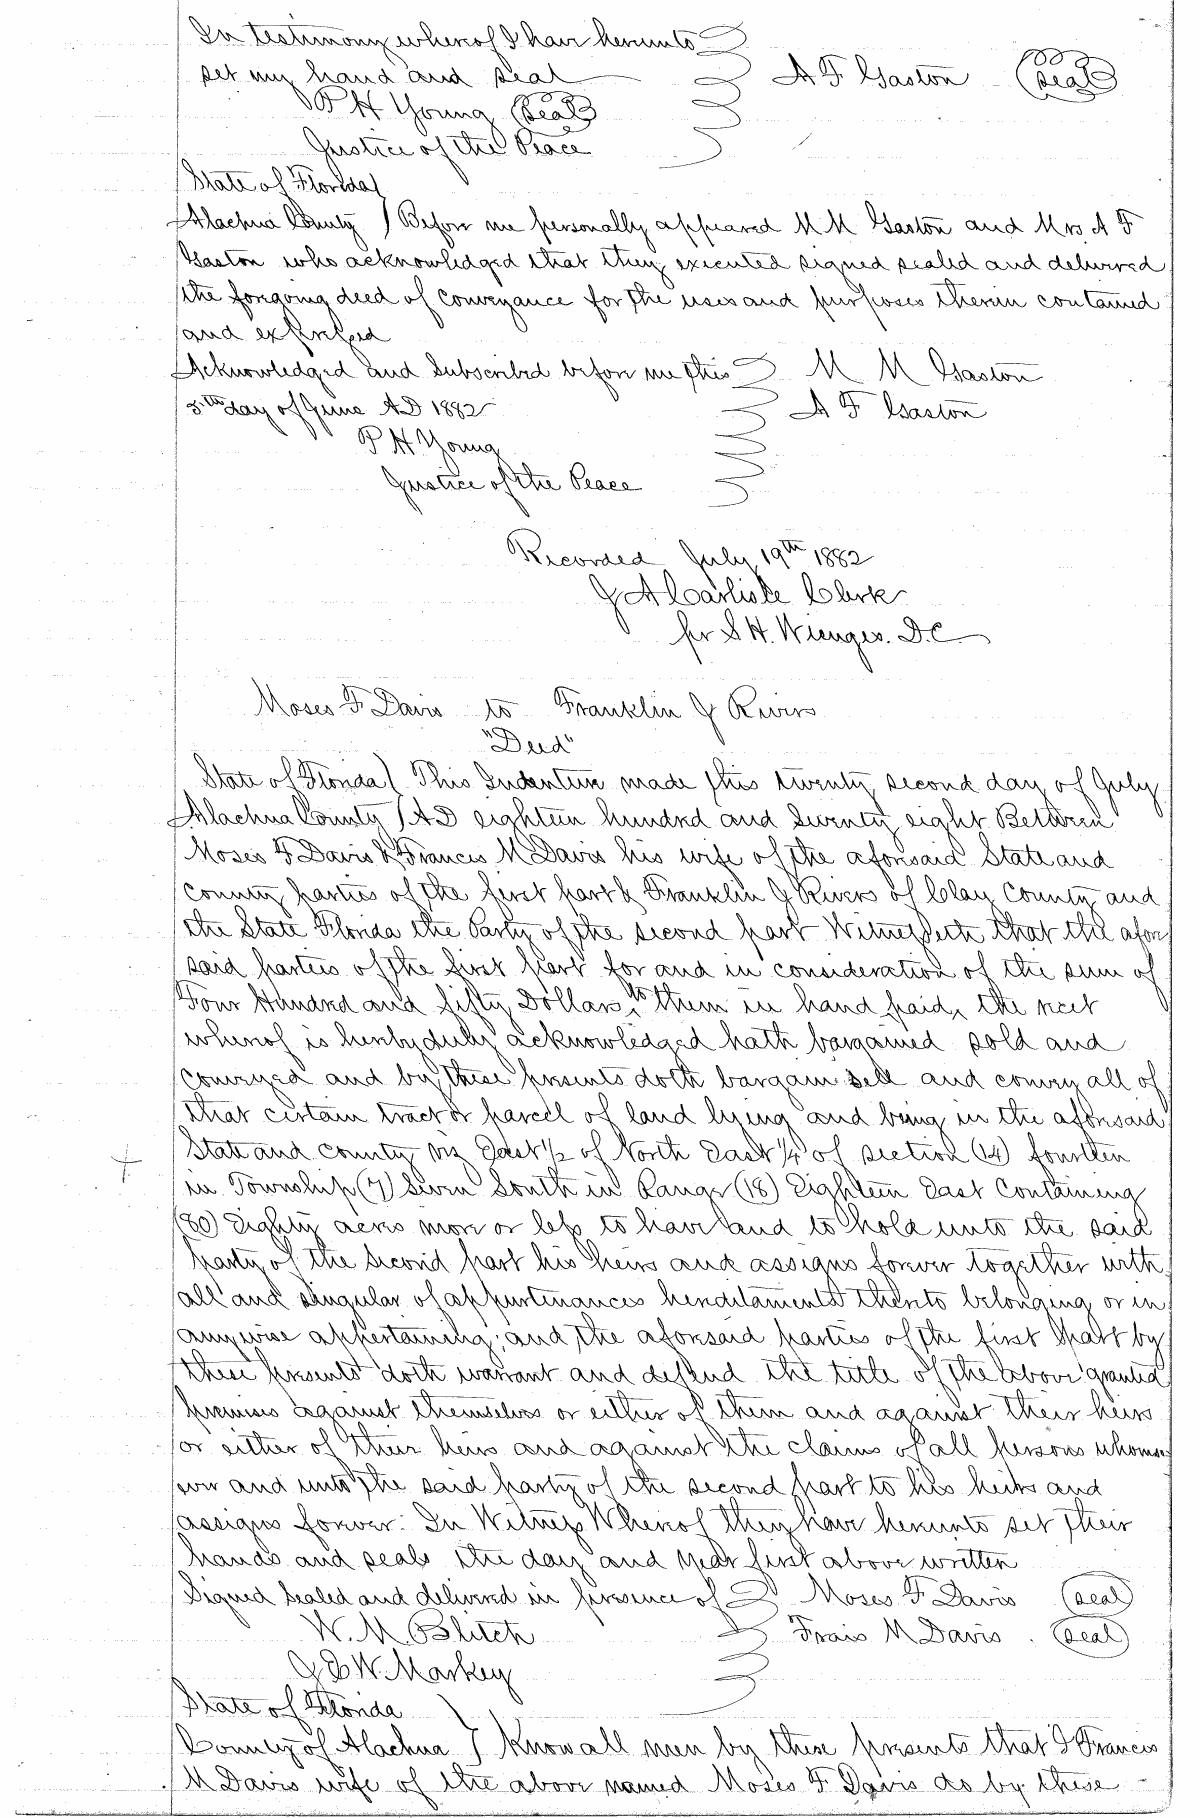 In testimony whereof I have hereunto
set my hand and seal A F Gaston (Seal)
P H Young (Seal)
Justice of the Peace
State of Florida
Alachua County Before me personally appeared M M Gaston and Mrs A F
Gaston who acknowledged that they executed signed sealed and delivered
the foregoing deed of conveyance for the uses and purposes therein contained
and expressed
Acknowledged and Subscribed before me this M M Gaston
5th day of June AD 1882 A F Gaston
P H Young
Justice of the Peace
Recorded July 19th 1882
J A Carlisle Clerk
per S H. Wienges. D.C.
Moses F Davis to Franklin J Rivers
"Deed"
State of Florida This Indenture made this twenty second day of July
Alachua County AD eighteen hundred and Seventy eight Between
Moses F Davis & Francis M Davis his wife of the aforesaid State and
County parties of the first part & Franklin J Rivers of Clay County and
the State Florida the Party of the second part Witnesseth that the afore
said parties of the first part for and in consideration of the sum of
Four Hundred and fifty Dollars to them in hand paid, the recet
whereof is hereby duly acknowledged hath bargained sold and
Conveyed and by these presents doth bargain sell and convey all of
that certain tract or parcel of land lying and being in the aforesaid
State and county viz East 1/2 of North East 1/4 of section (14) fourteen
in Township (7) Seven South in Range (18) Eighteen East Containing
(80) Eighty acres more or less to have and to hold unto the said
party of the second part his heirs and assigns forever together with
all and singular of appurtenances hereditaments thereto belonging or in
anywise appertaining; and the aforesaid parties of the first part by
these presents doth warrant and defend the title of the above granted
premises against themselves or either of them and against their heirs
or either of their heirs and against the claims of all persons whomso
ever and unto the said party of the second part to his heirs and
assigns forever. In Witness Whereof they have hereunto set their
hands and seals the day and year first above written
Signed Sealed and delivered in presence of Moses F Davis (seal)
W. M. Blitch Frais M Davis. (seal)
J W. Markey
State of Florida
County of Alachua Know all men by these presents that I Francis
M Davis wife of the above named Moses F Davis do by these